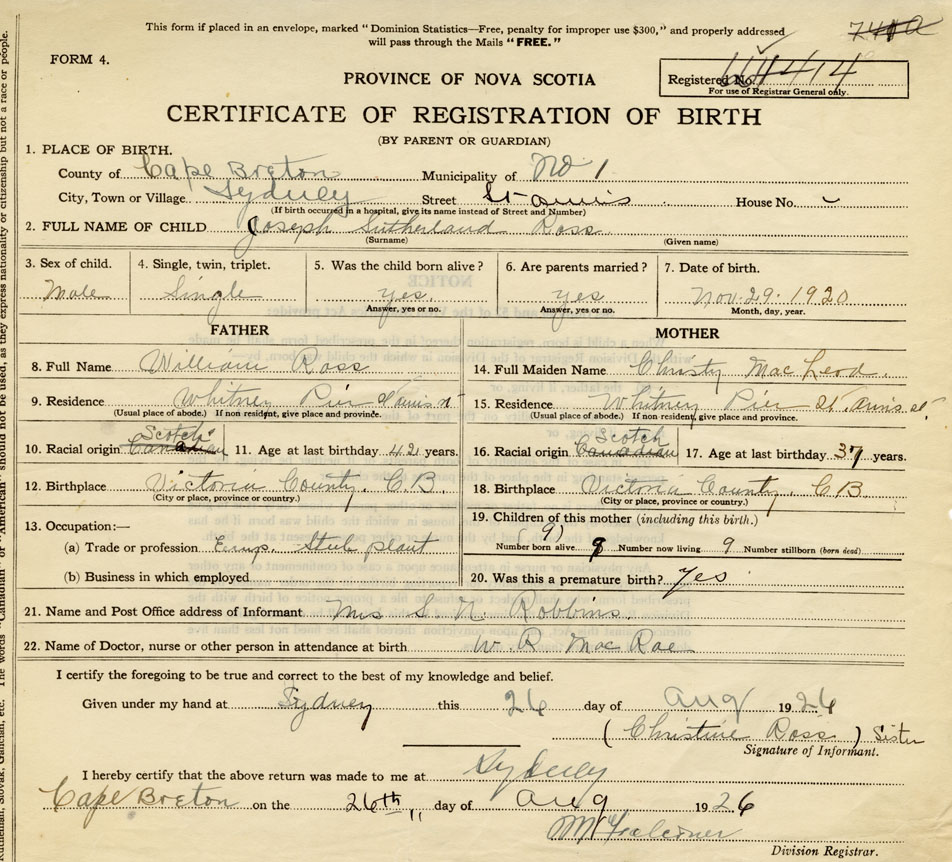 This form if placed in an envelope, marked "Dominion Statistics—Free, penalty for improper use $300," and properly addressed
will pass through the Mails "FREE."
FORM 4.
PROVINCE OF NOVA SCOTIA
Registered No.
For use of Registrar General only.
CERTIFICATE OF REGISTRATION OF BIRTH
(BY PARENT OR GUARDIAN)
1. PLACE OF BIRTH.
County of Cape Breton Municipality of No 1
City, Town or Village Sydney Street St Annis House No. -
(If birth occurred in a hospital, give its name instead of Street and Number)
2. FULL NAME OF CHILD Joseph Sutherland Ross
(Surname) (Given name)
3. Sex of child. 4. Single, twin, triplet. 5. Was the child born alive? 6. Are parents married? 7. Date of birth.
Male Single yes. yes Nov. 29. 1920
Answer, yes or no. Answer, yes or no. Month, day, year.
FATHER MOTHER
8. Full Name William Ross 14. Full Maiden Name Christy Mac Leod.
9. Residence Whitney Pier St Annis st 15. Residence Whitney Pier St Annis st.
(Usual place of abode.) If non resident, give place and province. (Usual place of abode.) If non resident, give place and province.
10. Racial origin Canadian Scotch 11. Age at last birthday 42 years. 16. Racial origin Canadian Scotch 17. Age at last birthday 37 years.
12. Birthplace Victoria County. C B. 18. Birthplace Victoria County. C B
(City or place, province or country.) (City or place, province or country.)
13. Occupation:— 19. Children of this mother (including this birth.)
(a) Trade or profession Emp. Steel plant (9)
Number born alive 9 Number now living 9 Number stillborn (born dead)
(b) Business in which employed 20. Was this a premature birth? Yes
21. Name and Post Office address of Informant Mrs S. N. Robbins.
22. Name of Doctor, nurse or other person in attendance at birth W. R Mac Rae
I certify the foregoing to be true and correct to the best of my knowledge and belief.
Given under my hand at Sydney this 26 day of Aug 1926
(Christine Ross) Sister
Signature of Informant.
I hereby certify that the above return was made to me at Sydney
Cape Breton on the 26th day of Aug 1926
Division Registrar.